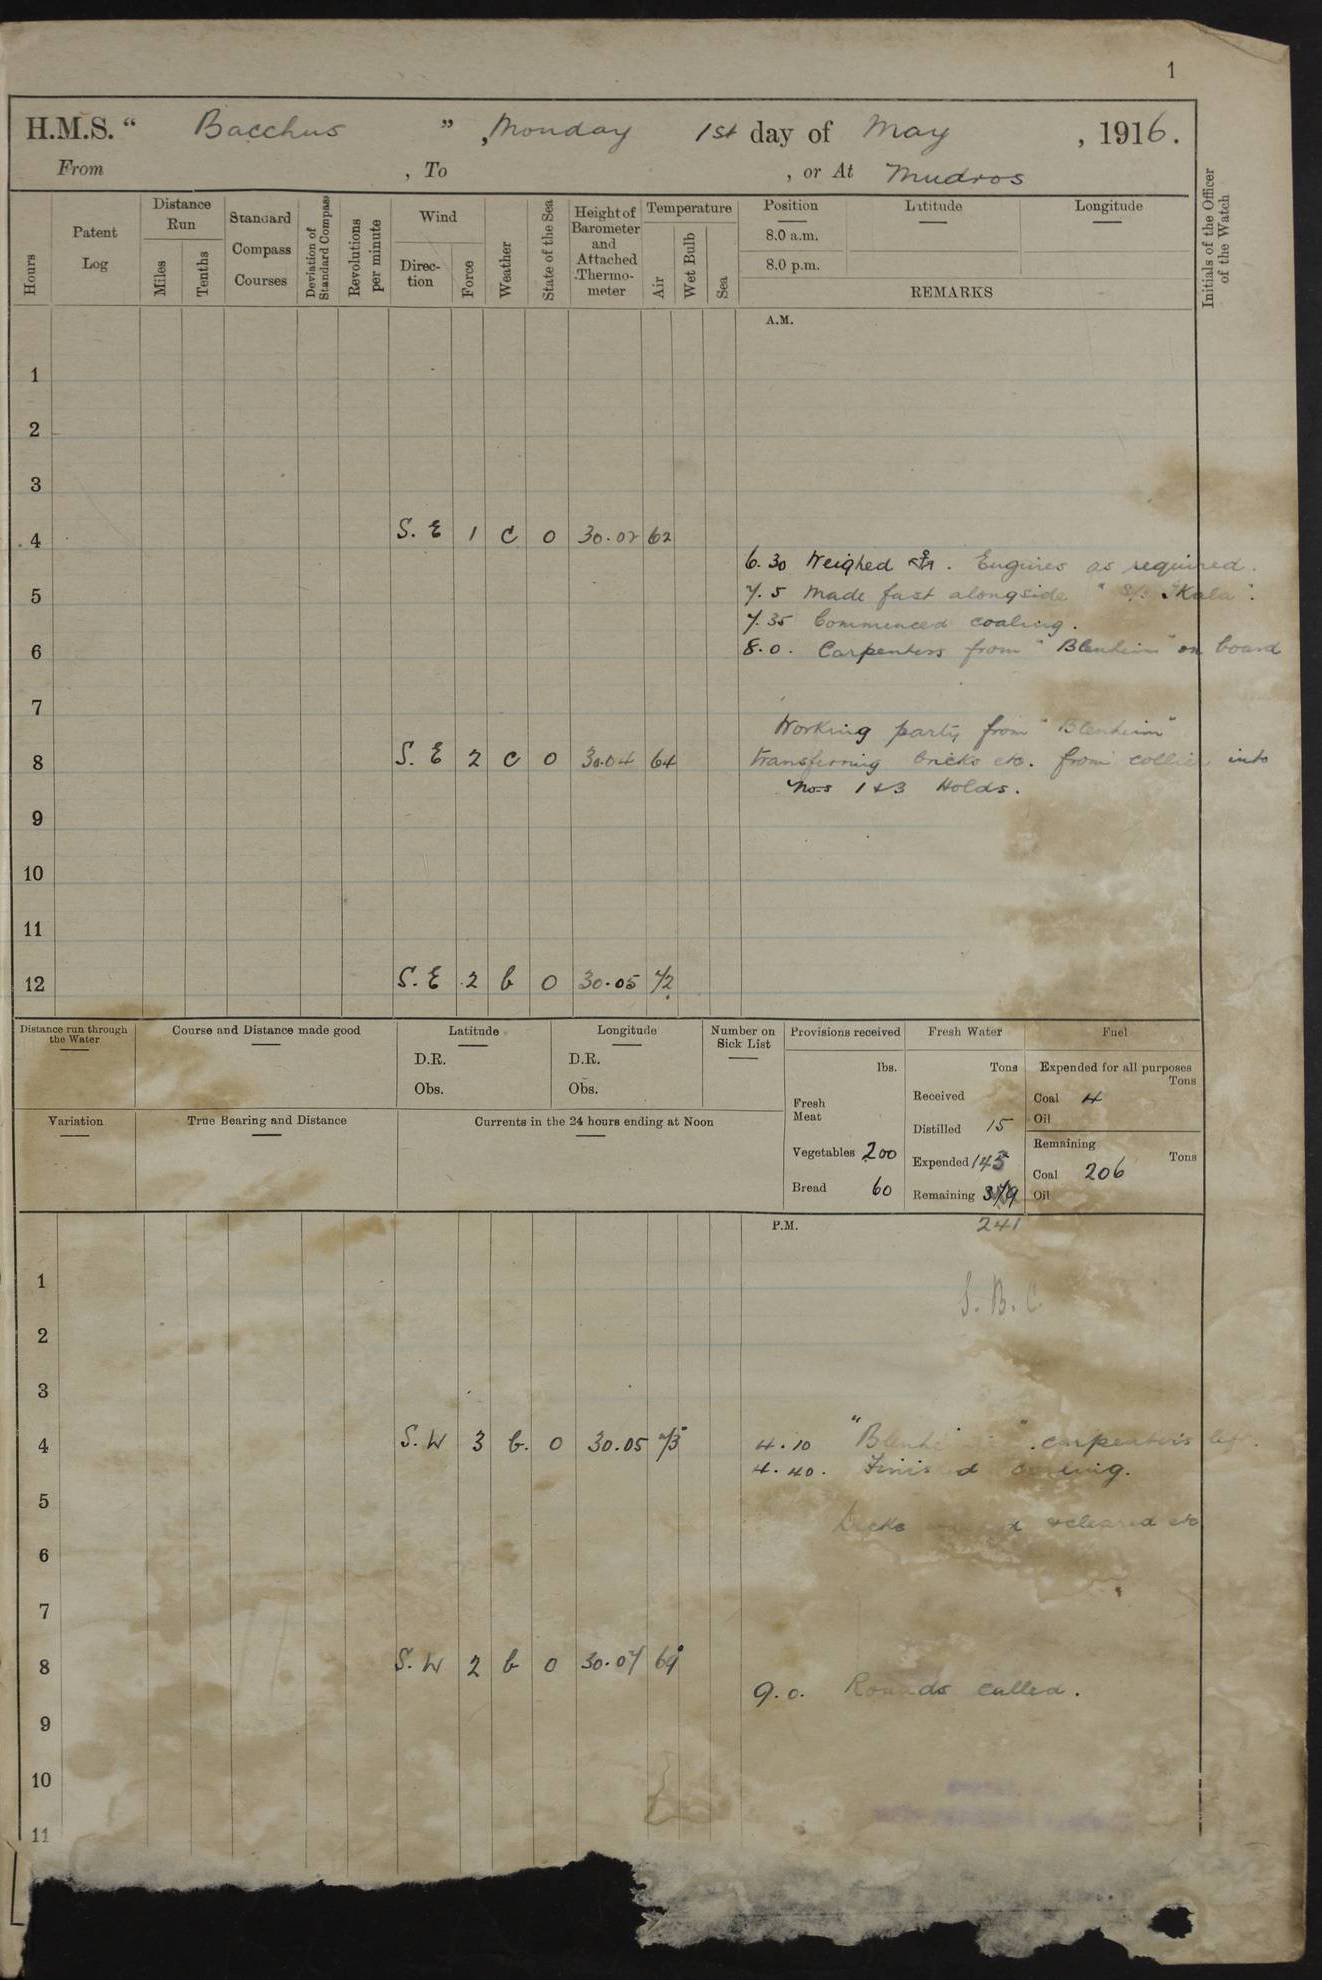 1
H.M.S. " Bacchus " , Monday 1st day of May , 1916.
From , To , or At Mudros
Hours
Patent Log
Distance Run
Miles
Tenths
Standard Compass Courses
Deviation of Standard Compass
Revolutions per minute
Wind
Direc-tion
Force
Weather
State of the Sea
Height of Barometer and Attached Thermo-meter
Temperature
Air
Wet Bulb
Sea
Position
Latitude
Longitude
8.0 a.m.
8.0 p.m.
REMARKS
Initials of the Officer of the Watch
A.M.
1
2
3
4 S. E 1 c 0 30.02 62
6.30 Weighed . Engines as required.
5 7.5 Made fast alongside " Kala ".
7.35 Commenced coaling.
6 8.0. Carpenters from "Blenheim" on board
7
Working party from "Blenheim"
8 S. E 2 c 0 30.04 64 transferring bricks etc. from collier into
Nos 1 & 3 Holds.
9
10
11
12 S. E 2 b 0 30.05 72
Distance run through the Water
Course and Distance made good
Latitude
D.R.
Obs.
Longitude
D.R.
Obs.
Number on Sick List
Provisions received
lbs.
Fresh Meat
Vegetables 200
Bread 60
Fresh Water
Tons
Received
Distilled 15
Expended 145
Remaining
241
Fuel
Expended for all purposes
Tons
Coal 4
Oil
Remaining
Tons
Coal 206
Oil
Variation
True Bearing and Distance
Currents in the 24 hours ending at Noon
P.M.
1
S. B. C
2
3
4 S. W 3 b. 0 30.05 75 4.10 "Blenheim" carpenters left.
4.40. Finished coaling.
5
Decks & cleared etc
6
7
8 S. W 2 b 0 30.07 69
9.0. Rounds called.
9
10
11